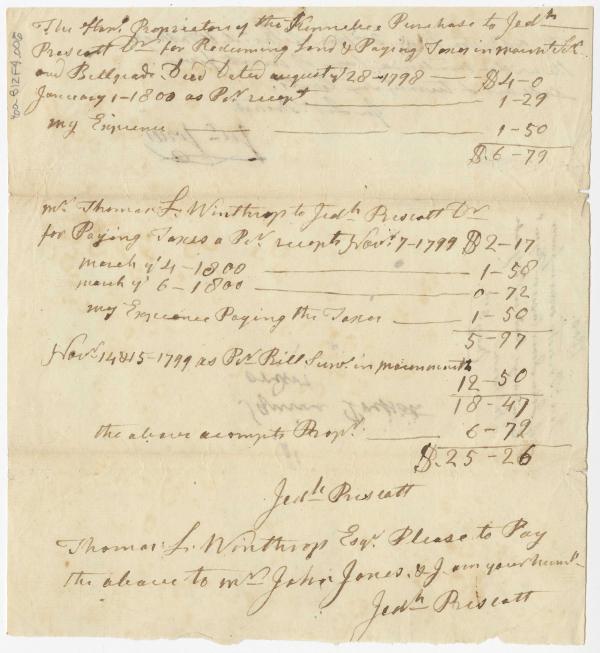 The Honl. Proprietors of the Kennebec Purchase to Jedh
Prescott Dr for Redeeming Land & Paying Taxes in mount
and Bellgrade Deed Dated august ye 28-1798 — $4-0
January 1-1800 as Pr. recept — 1-29
my Expence — 1-50
$.6-79
mr. Thomas L. Winthrop to Jedh Prescott Dr
for Paying Taxes a Pr. recepts Novr. 7-1799 $2-17
march ye 4-1800 — 1-58
march ye 6-1800 — 0-72
my Expence Paying the Taxes — 1-50
5-97
Novr. 14&15-1799 as Pr. Bill Surv. in
12-50
18-47
the above acompts Propr. — 6-79
$.25-26
Jedh Prescott
Thomas L. Winthrop Esqr. Please to Pay
the above to mr. John Jones, & I am your
Jedh Prescott